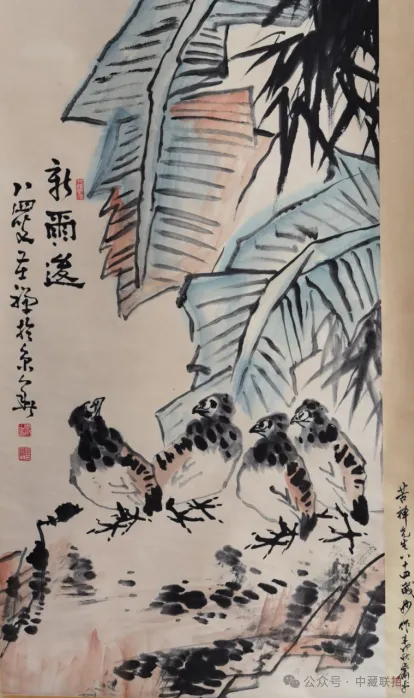 新雨後
八四叟苦禪於京華
苦禪先生八十四歲妙作
公众号 · 中藏联拍